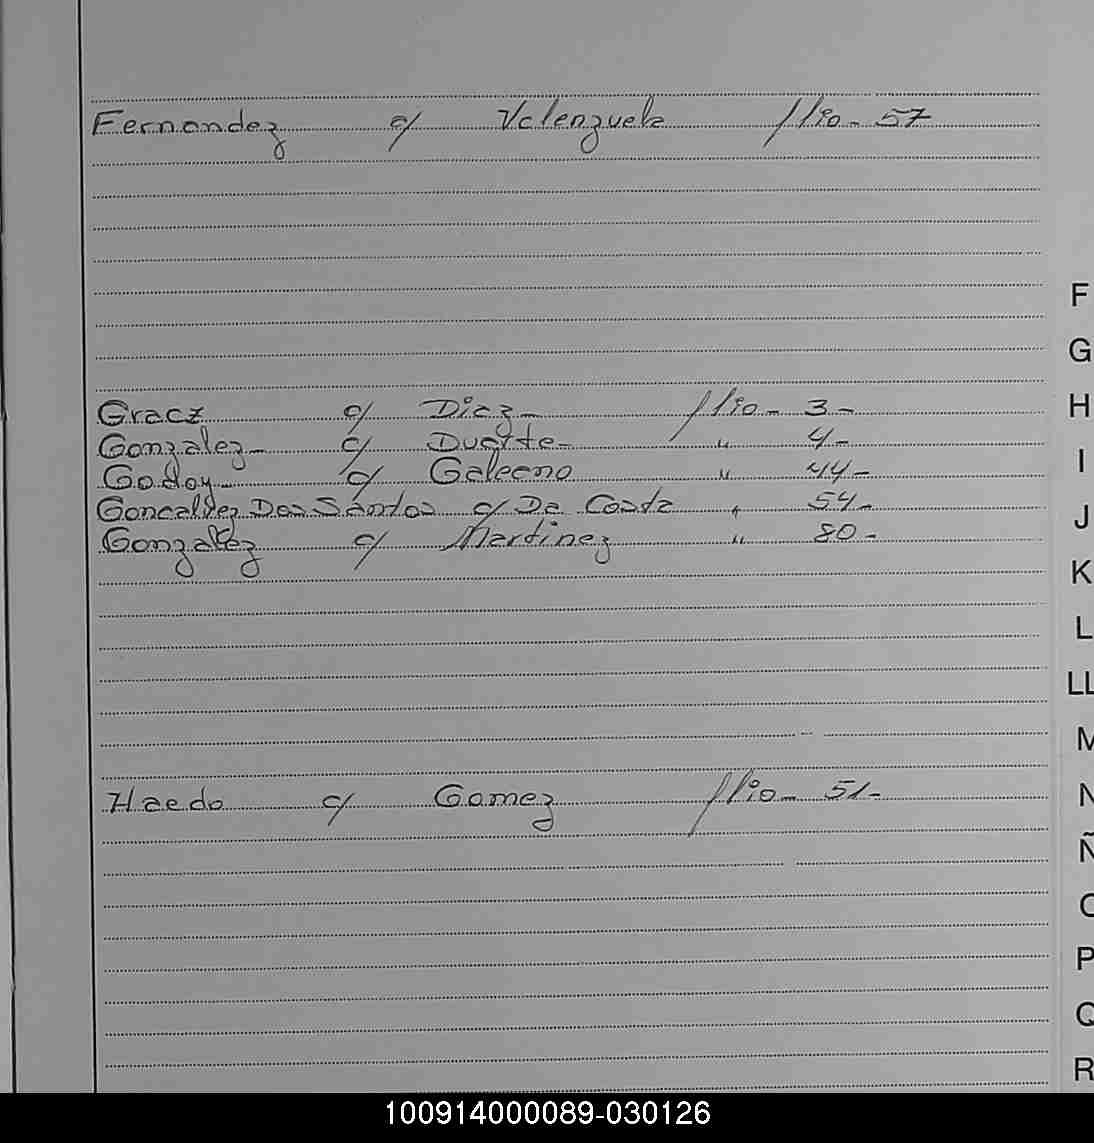 Fernandez c/ Valenzuela flio- 57
F
G
Gracz c/ Diaz- flio- 3-
H
Gonzalez- c/ Duarte- " 4-
Godoy- c/ Galeano " 44-
I
Goncalvez Dos Santos c/ Da Costa " 54-
J
Gonzalez c/ Martinez " 80-
K
L
LL
M
Haedo c/ Gomez flio- 51-
N
Ñ
O
P
Q
R
100914000089-030126